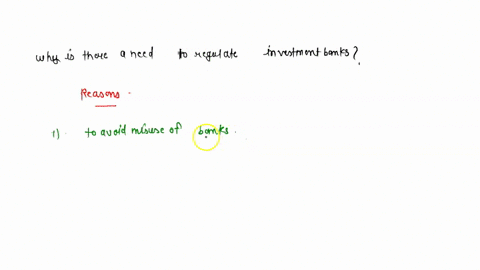 why is there a need to regulate investment banks?
Reasons -
1) to avoid misuse of banks.